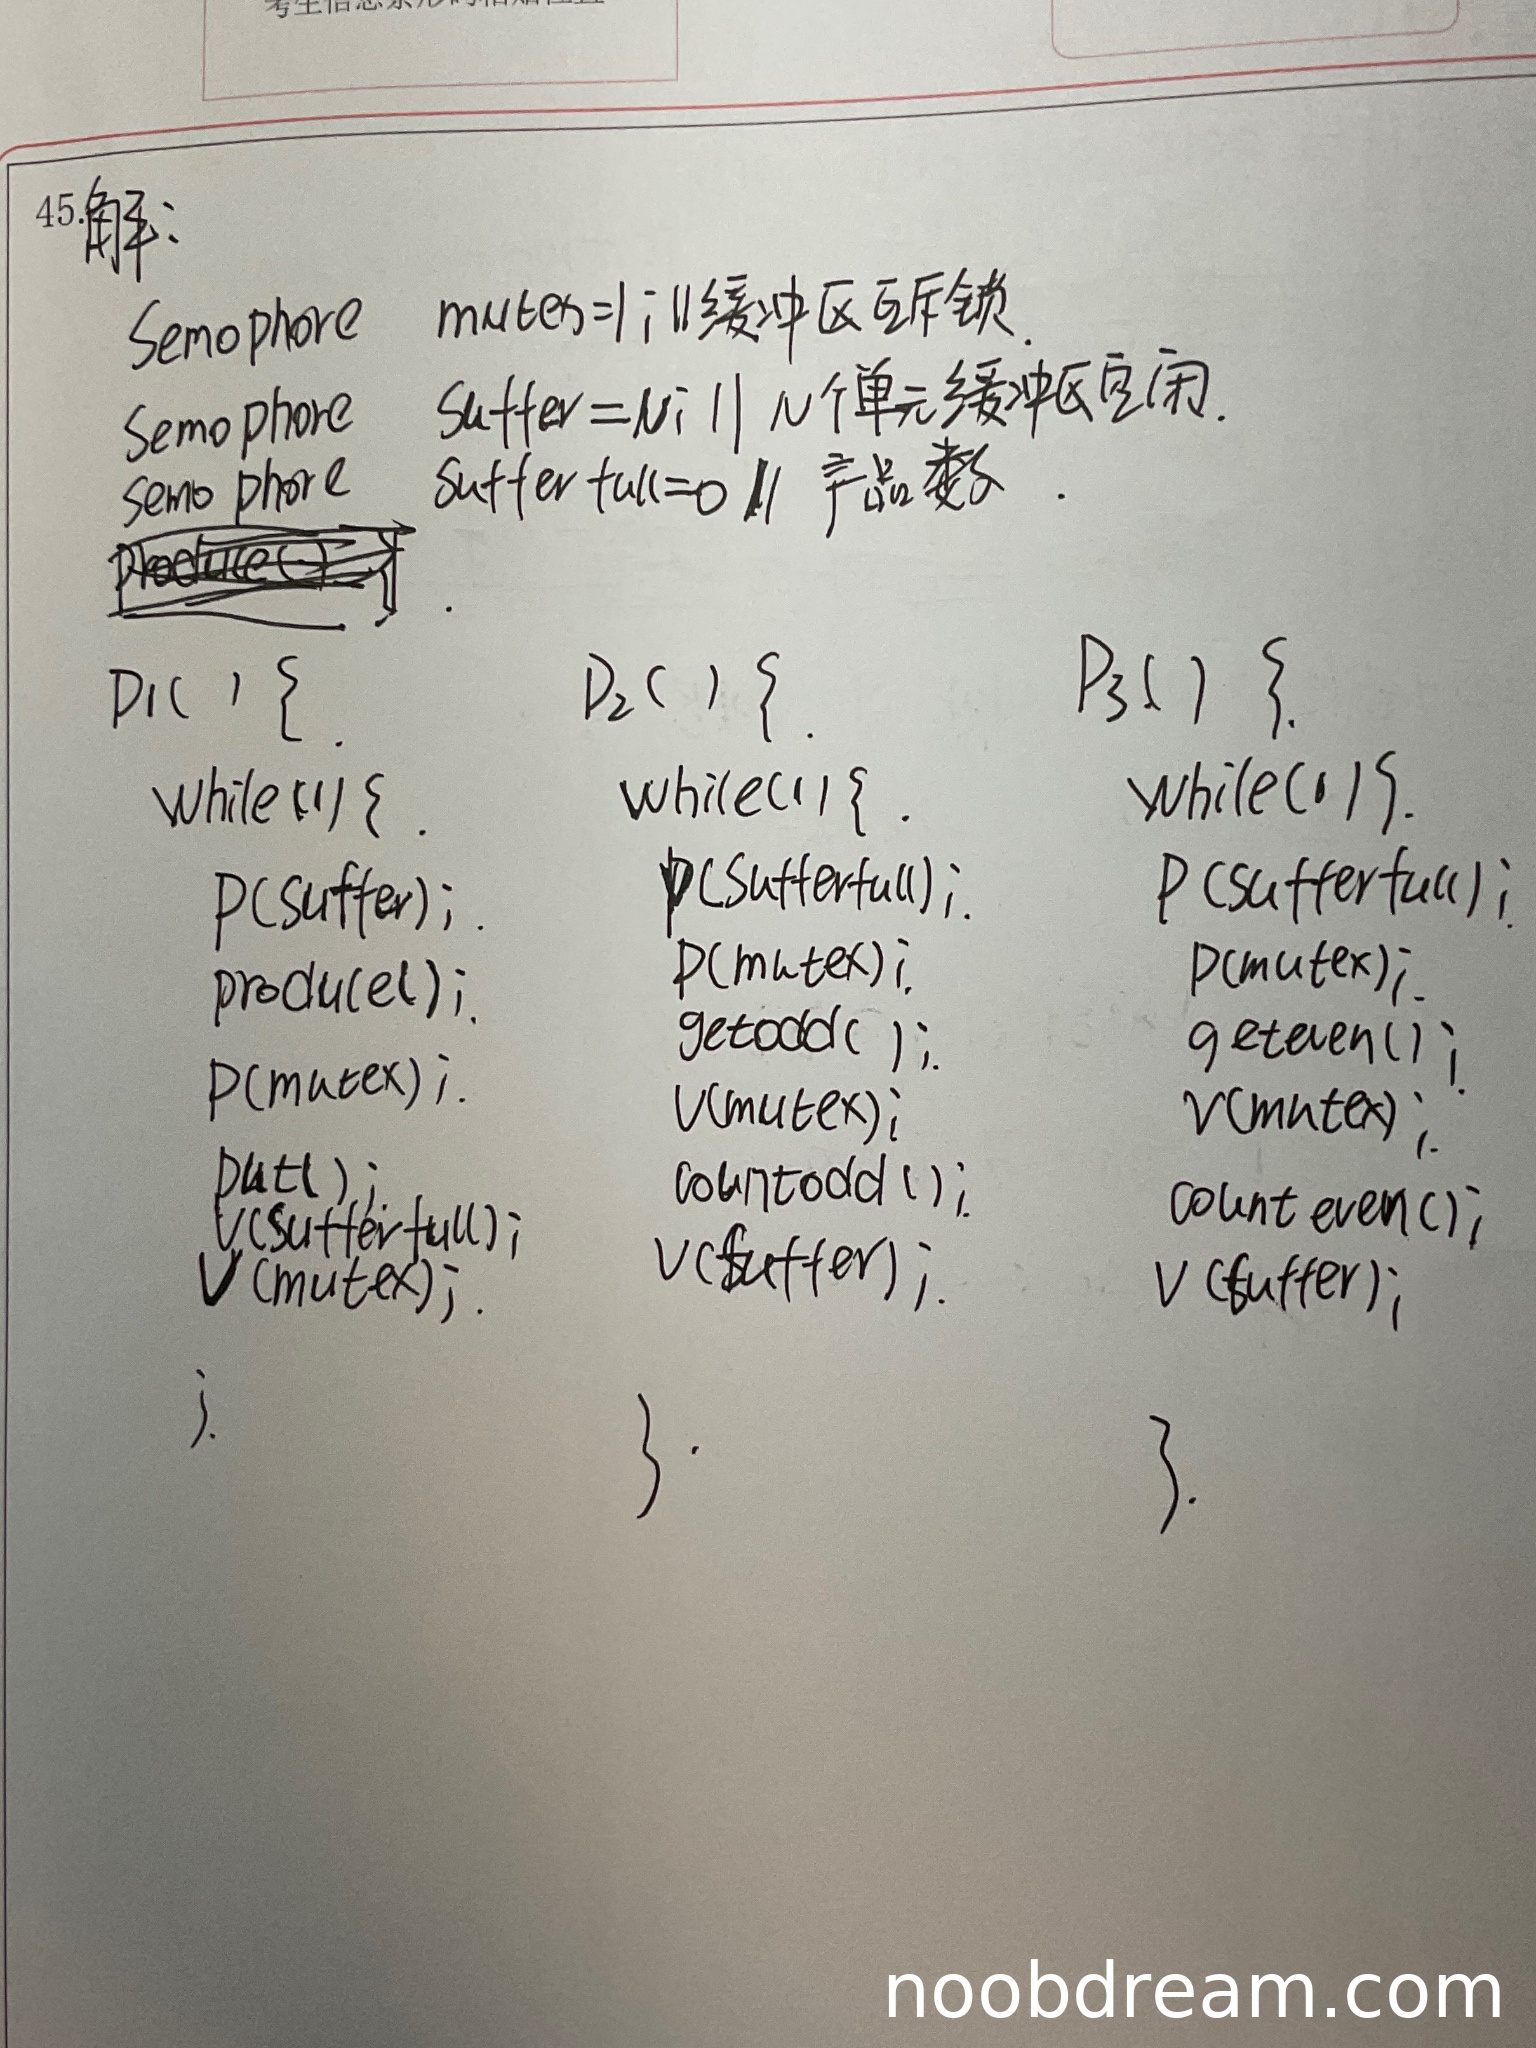 考生信息条形码粘贴位置
45.解:
Semophore mutex=1;//缓冲区互斥锁.
Semophore Suffer=N;//N个单元缓冲区空闲.
semo phore Sufferfull=0 // 产品数.
produce() {
P1( ) {.
while(1) {.
P(Suffer);.
produce();.
P(mutex);.
put( );
V(Sufferfull);
V(mutex);.
}.
P2( ) {.
while(1) {.
P(Sufferfull);.
P(mutex);.
getodd( );.
V(mutex);
countodd ();.
V(Suffer);.
}.
P3( ) {.
while(1) {.
P(sufferfull);.
P(mutex);.
geteven();.
V(mutex);.
count even();
V(Suffer);
}.
noobdream.com